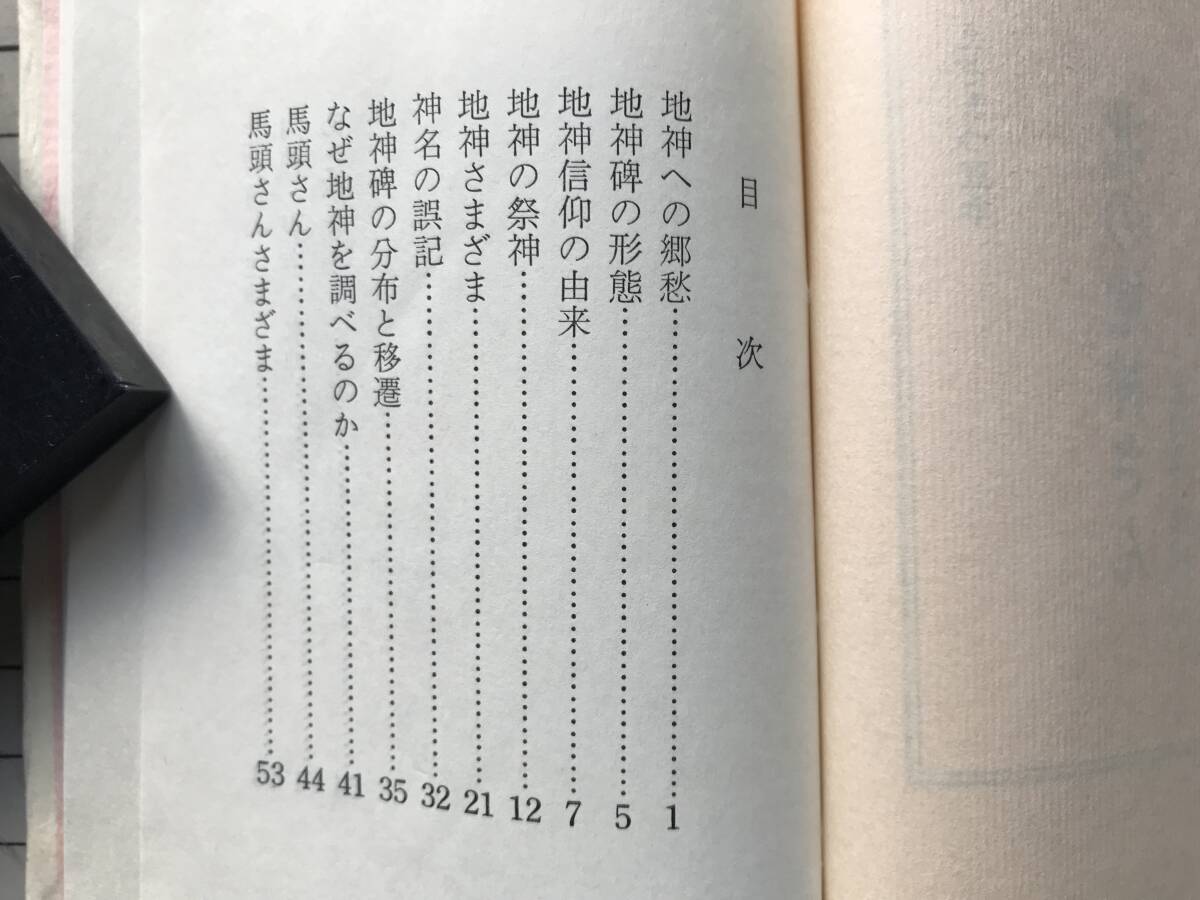 目次
地神への郷愁……1
地神碑の形態……5
地神信仰の由来……7
地神の祭神……12
地神さまざま……21
神名の誤記……32
地神碑の分布と移遷……35
なぜ地神を調べるのか……41
馬頭さん……44
馬頭さんさまざま……53